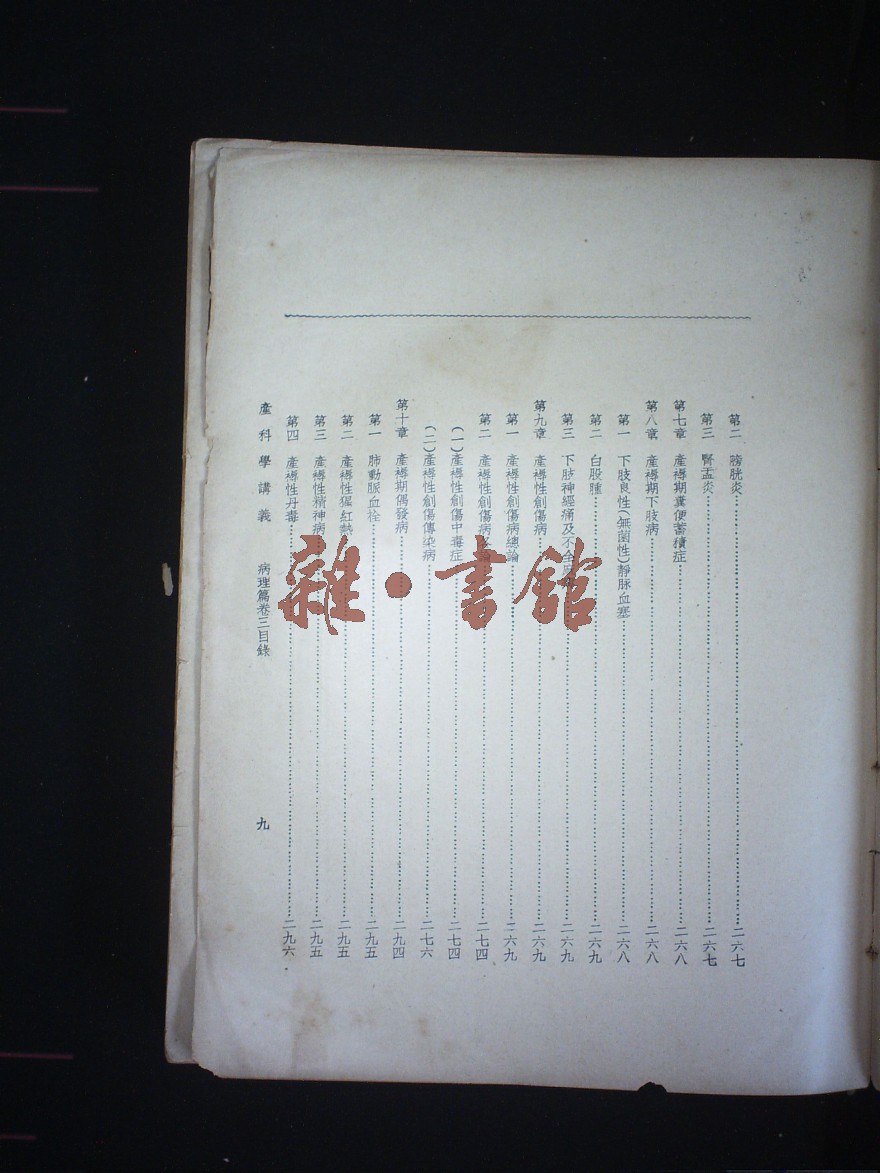 第二　膀胱炎……二六七
第三　腎盂炎……二六七
第七章　產褥期糞便蓄積症……二六八
第八章　產褥期下肢病……二六八
第一　下肢良性(無菌性)靜脉血塞……二六八
第二　白股腫……二六九
第三　下肢神經痛及不全……二六九
第九章　產褥性創傷病……二六九
第一　產褥性創傷病總論……二六九
第二　產褥性創傷病各論……二七四
(一)產褥性創傷中毒症……二七四
(二)產褥性創傷傳染病……二七六
第十章　產褥期偶發病……二九四
第一　肺動脈血栓……二九五
第二　產褥性猩紅熱……二九五
第三　產褥性精神病……二九五
第四　產褥性丹毒……二九六
產科學講義　病理篇卷三目錄　九
雜·書館